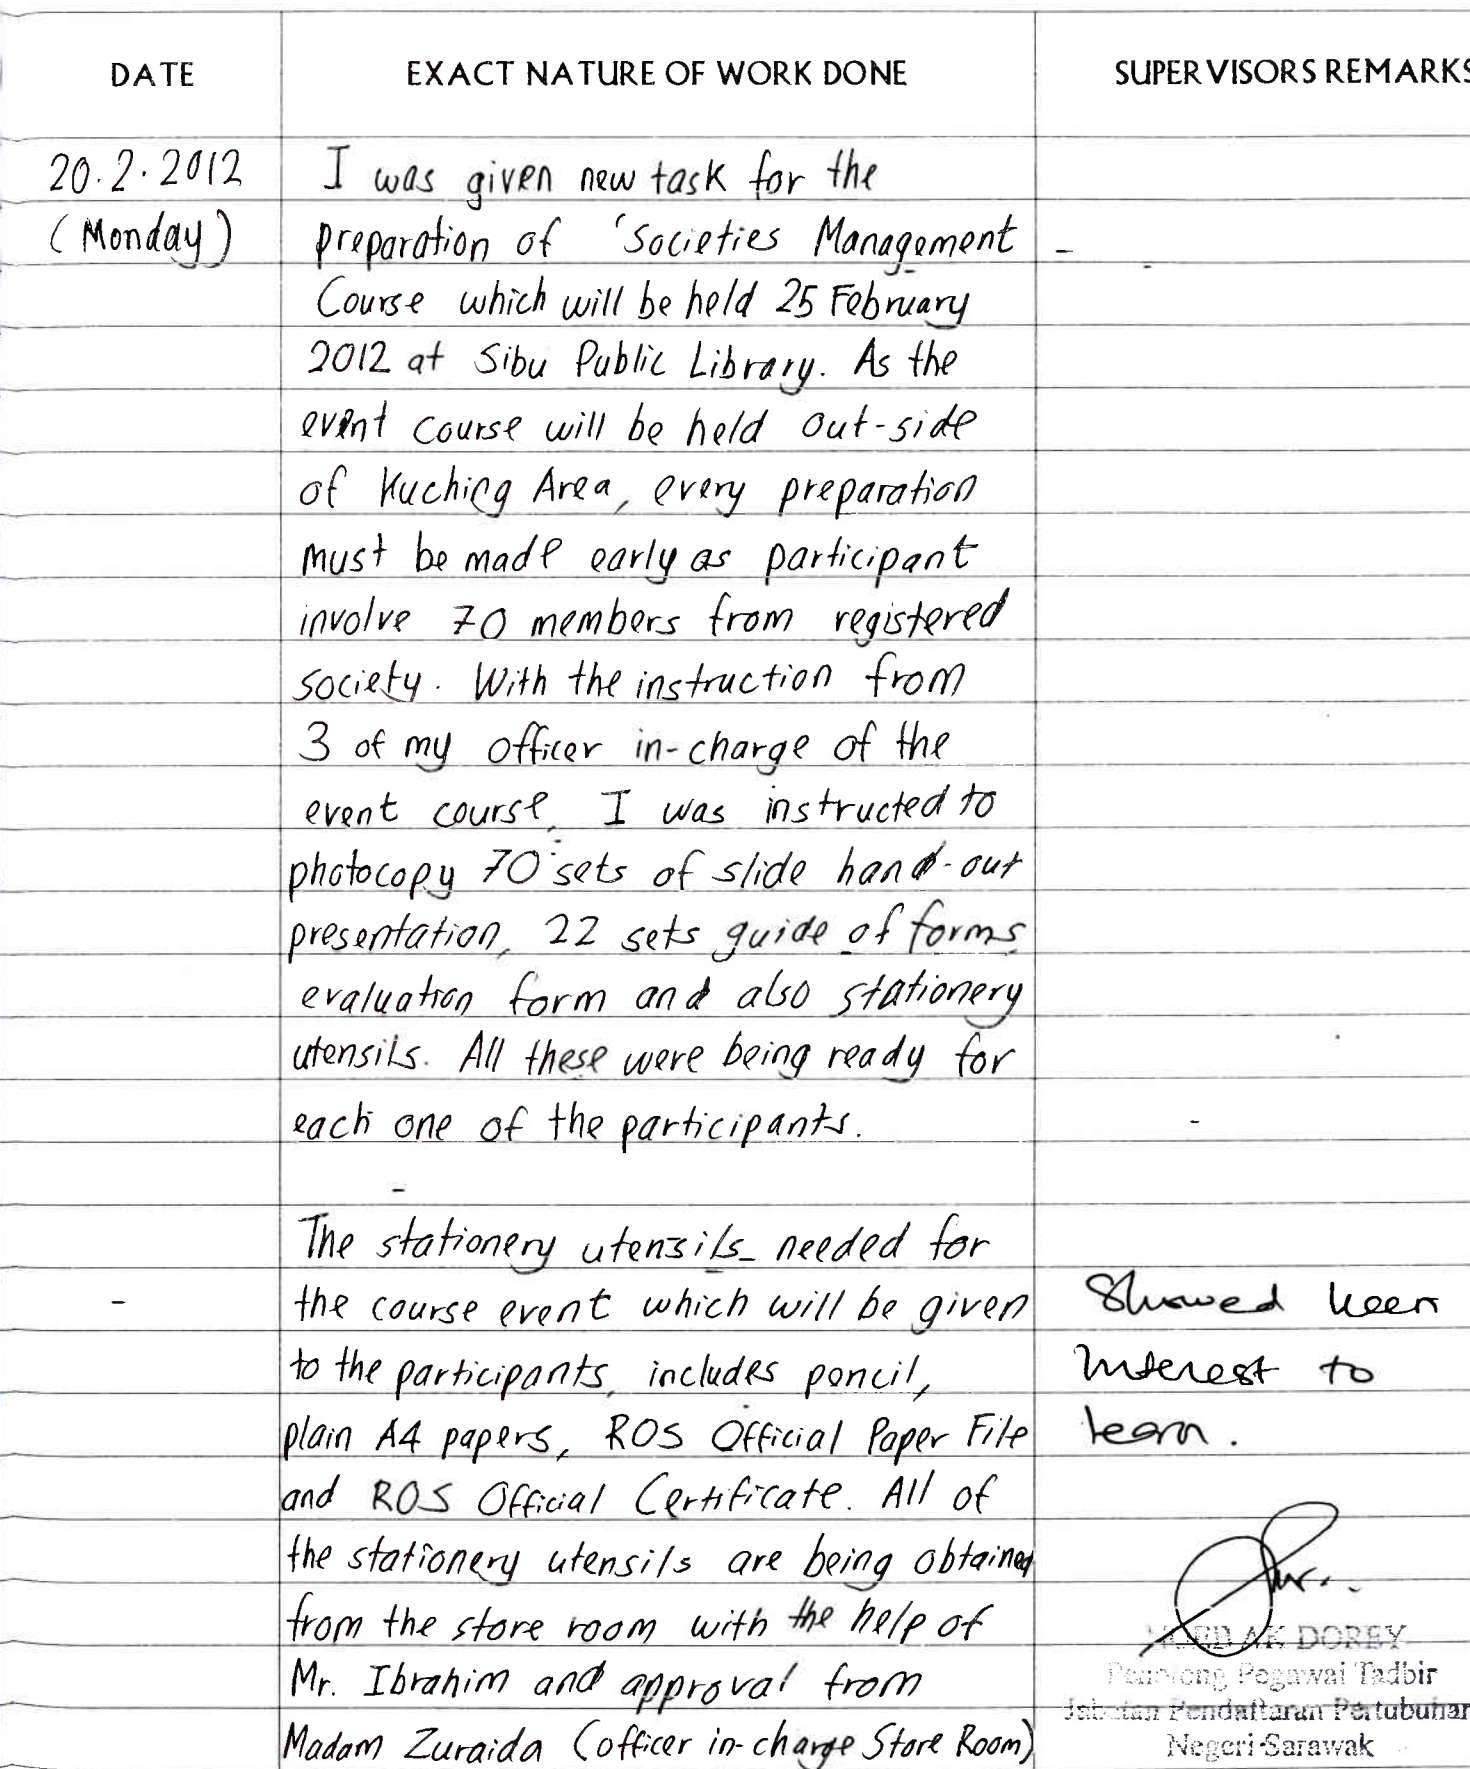 DATE EXACT NATURE OF WORK DONE SUPERVISORS REMARKS
20.2.2012 I was given new task for the
(Monday) preparation of 'Societies Management
Course which will be held 25 February
2012 at Sibu Public Library. As the
event course will be held out-side
of Kuching Area, every preparation
must be made early as participant
involve 70 members from registered
society. With the instruction from
3 of my officer in-charge of the
event course, I was instructed to
photocopy 70 sets of slide hand-out
presentation, 22 sets guide of forms,
evaluation form and also stationery
utensils. All these were being ready for
each one of the participants.
The stationery utensils needed for
the course event which will be given
to the participants, includes pencil,
plain A4 papers, ROS Official Paper File
and ROS Official Certificate. All of
the stationery utensils are being obtained
from the store room with the help of
Mr. Ibrahim and approval from
Madam Zuraida (officer in-charge Store Room)
Showed keen
interest to
learn.
AK DOREY
Penolong Pegawai Tadbir
Jabatan Pendaftaran Pertubuhan
Negeri Sarawak